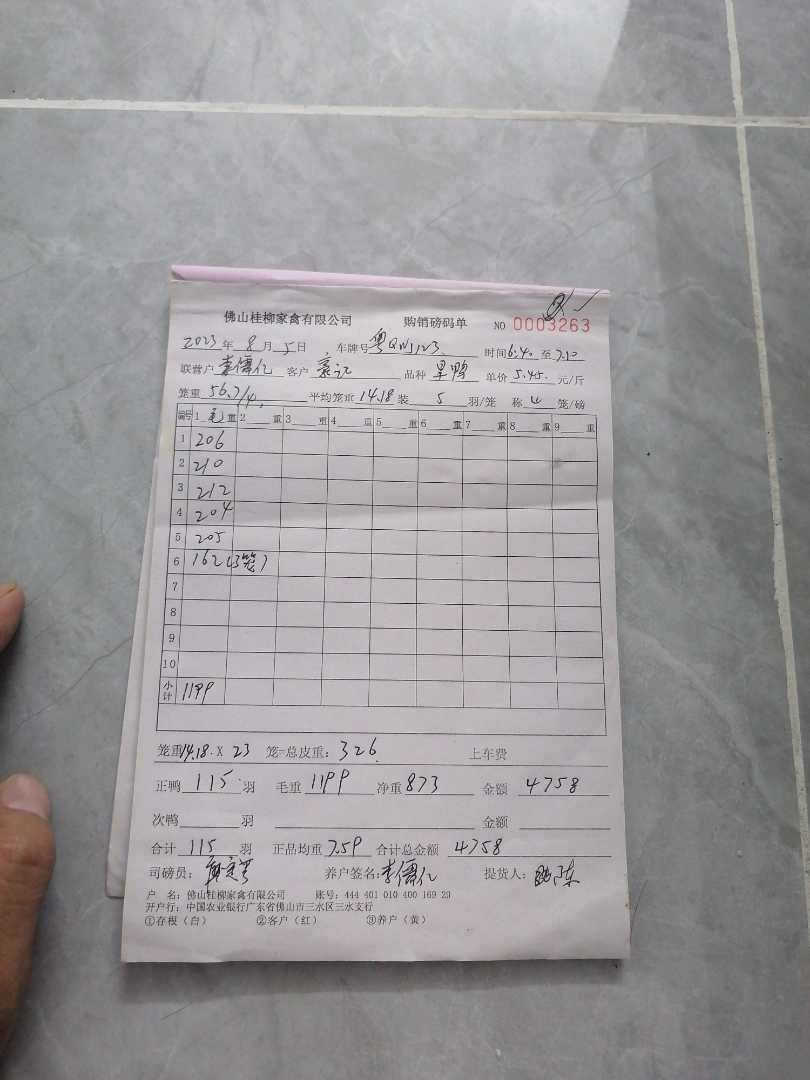 佛山桂柳家禽有限公司 购销磅码单 NO 0003263
2023年8月5日 车牌号粤QNJ123 时间6:40至7:10
联营户李儒亿 客户 品种旱鸭 单价5.45.元/斤
笼重56.7/4 平均笼重14.18装5羽/笼 称4笼/磅
编号 1毛重 2重 3重 4重 5重 6重 7重 8重 9重
1 206
2 210
3 212
4 204
5 205
6 162(3笼)
7
8
9
10
小计 1199
笼重14.18.X 23 笼=总皮重:326 上车费
正鸭115羽 毛重1199净重873 金额4758
次鸭 羽 金额
合计115羽 正品均重7.59 合计总金额4758
司磅员: 养户签名:李儒亿 提货人:
户 名:佛山桂柳家禽有限公司 账号:444 401 010 400 169 29
开户行:中国农业银行广东省佛山市三水区三水支行
①存根(白) ②客户(红) ③养户(黄)